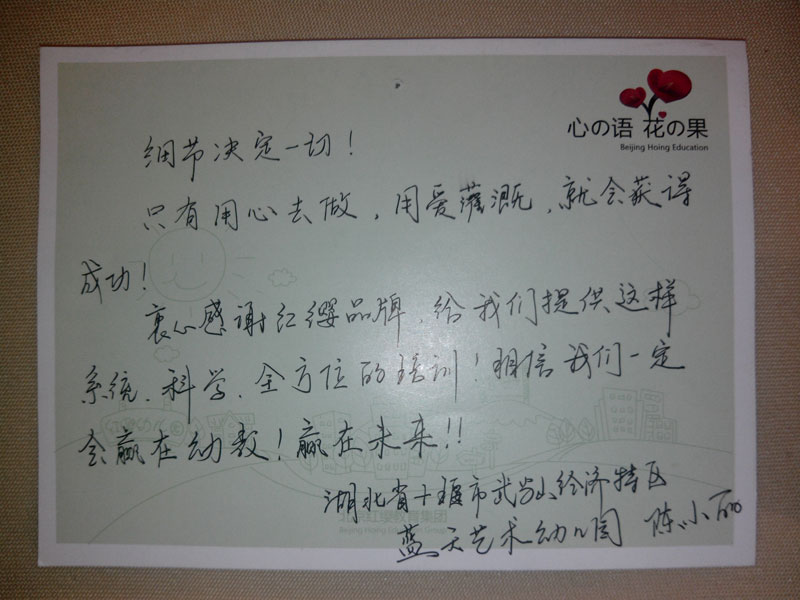 心の语 花の果
Beijing Hoing Education
细节决定一切！
只有用心去做，用爱灌溉，就会获得
成功！
衷心感谢红缨品牌，给我们提供这样
系统、科学、全方位的培训！相信我们一定
会赢在幼教！赢在未来！！
湖北省十堰市武当山经济特区
北京红缨教育集团
Beijing Hoing Education Group
蓝天艺术幼儿园 陈小丽